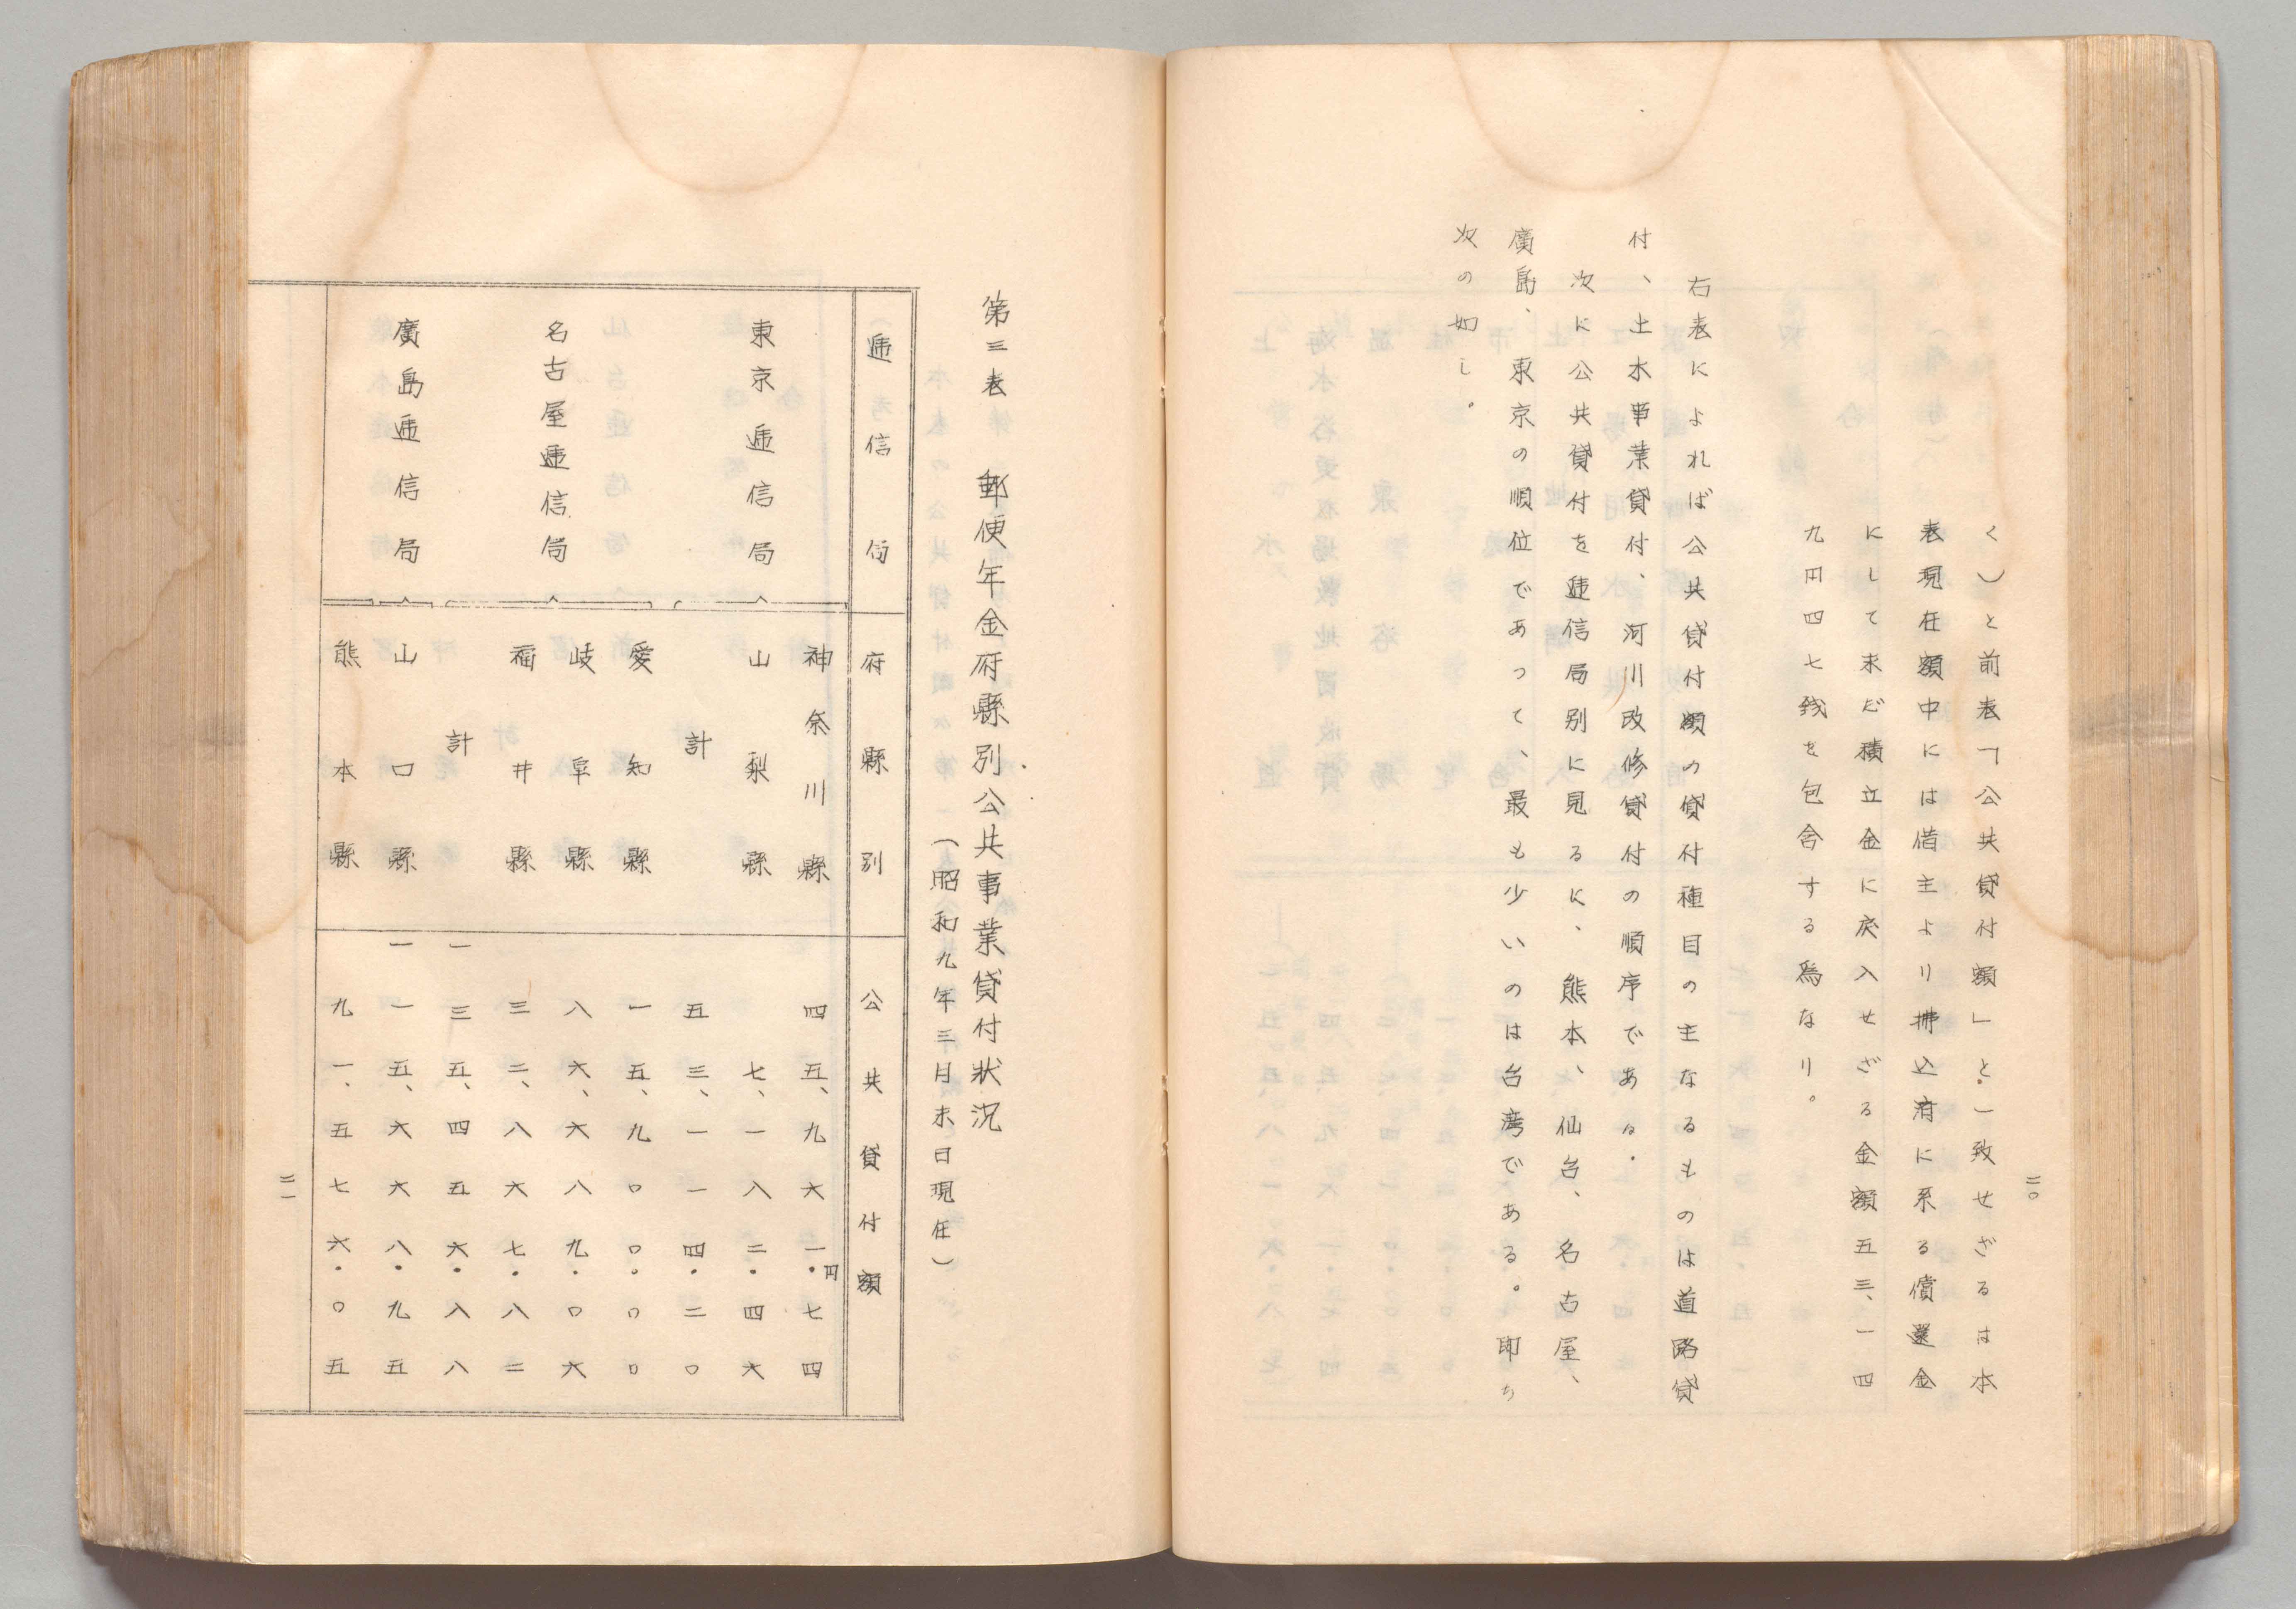 二〇
く）と前表「公共貸付額」と一致せざるは本
表現在額中には借主より拂込済に系る償還金
にして未だ積立金に戻入せざる金額五三、一四
九円四七銭を包含する爲なり。
右表によれば公共貸付額の貸付種目の主なるものは道路貸
付、土木事業貸付、河川改修貸付の順序である。
次に公共貸付を逓信局別に見るに、熊本、仙台、名古屋、
廣島、東京の順位であって、最も少いのは台湾である。即ち
次の如し。
第三表　郵便年金府縣別公共事業貸付狀況
（昭和九年三月末日現在）
逓信局　府縣別　公共貸付額
東京逓信局　神奈川縣　四五、九六一・七四円
山梨縣　七、一八二・四六
計　五三、一一四・二〇
名古屋逓信局　愛知縣　一五、九〇〇・〇〇
岐阜縣　八六、六八九・〇六
福井縣　三二、八六七・八二
計　一三五、四五六・八八
廣島逓信局　山口縣　一一五、六六八・九五
熊本縣　九一、五七六・〇五
二一